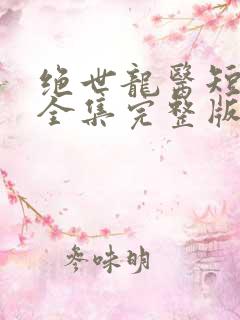 绝世龍醫短
全集完整版
参味明